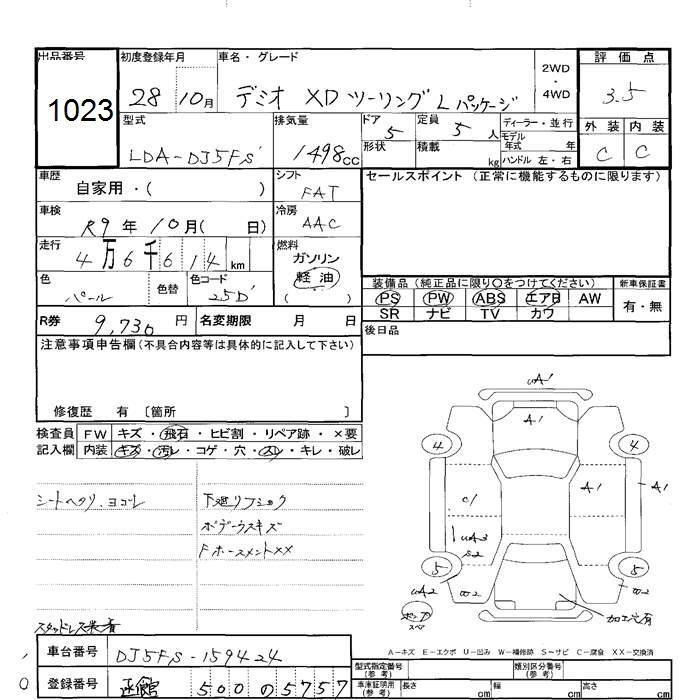 出品番号 1023
初度登録年月 28 10月
車名・グレード デミオ XD ツーリング L パッケージ
2WD・4WD
評価点 3.5
外装 C 内装 C
型式 LDA-DJ5FS
排気量 1498cc
ドア 5 形状
定員 5人 積載 kg
ディーラー・並行
モデル年式 年
ハンドル 左・右
車歴 自家用・( )
シフト FAT
車検 R9年10月( 日)
冷房 AAC
走行 4万6千614km
燃料 ガソリン 軽油 ( )
色 パール 色替 色コード 25D
セールスポイント (正常に機能するものに限ります)
装備品(純正品に限り○をつけてください) 新車保証書
PS PW ABS エアB AW 有・無
SR ナビ TV カワ
R券 9,730円 名変期限 月 日
後日品
注意事項申告欄(不具合内容等は具体的に記入して下さい)
修復歴 有 〔箇所 〕
検査員 FW キズ・飛石・ヒビ割・リペア跡・×要
記入欄 内装 キズ・汚レ・コゲ・穴・スレ・キレ・破レ
シートヘタリ、ヨゴレ
下廻りフショク
ボデーウスキズ
Fホースメント××
スタッドレス装着
uA1
A1
4 4
A1 A1
C1
uA3
S2
5 5
uA2 W2
W2
スペア
加工穴有
A-キズ E-エクボ U-凹み W-補修跡 S-サビ C-腐食 XX-交換済
車台番号 DJ5FS-159424
登録番号 函館 500 の 5757
型式指定番号(参考) 類別区分番号(参考)
車庫証明用(参考) 長さ cm 幅 cm 高さ cm